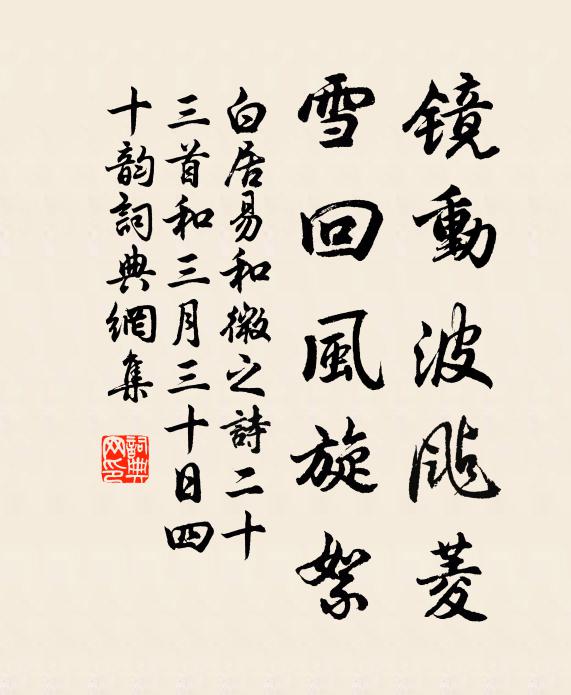 鏡動波颭菱
雪回風旋絮
白居易和微之詩二十
三首和三月三十日四
十韵詞典網集
詞典
网印